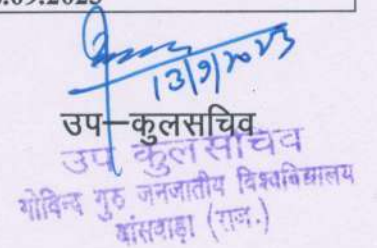 .09.2023
13/9/2023
उप–कुलसचिव
उप कुलसचिव
गोविन्द गुरु जनजातीय विश्वविद्यालय
बांसवाड़ा (राज.)